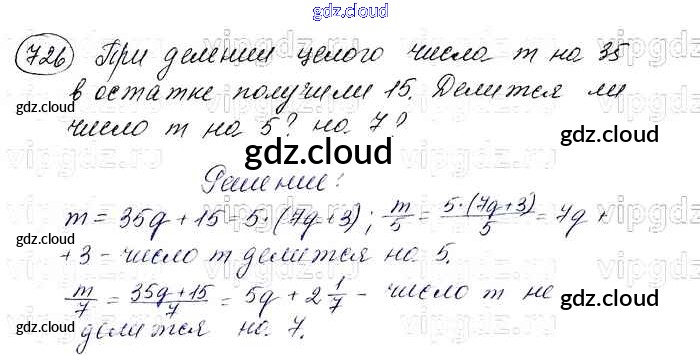 gdz.cloud
726 При делении целого числа m на 35
в остатке получили 15. Делится ли
gdz.cloud gdz.cloud
число m на 5? на 7?
gdz.cloud
Решение:
m = 35q + 15 = 5·(7q+3); m/5 = 5·(7q+3)/5 = 7q +
gdz.cloud gdz.cloud
+3 - число m делится на 5.
m/7 = 35q+15/7 = 5q + 2 1/7 - число m не
gdz.cloud
делится на 7.